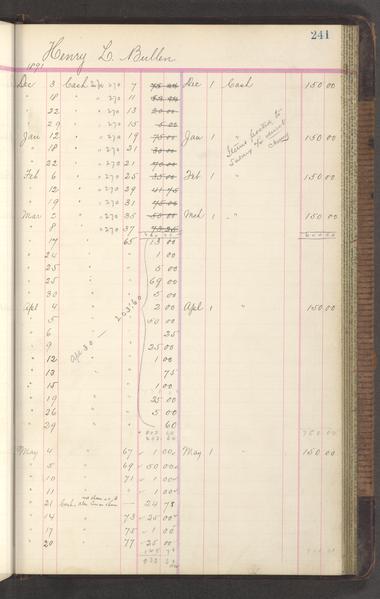 241
Henry L. Bullen
1891
Dec 3 Cash 270 7 Dec 1 Cash 150 00
18 " " 270 11
22 " " 270 13
29 " " 270 15
Jan 12 " " 270 19 75 00 Jan 1 " 150 00
18 " " 270 21 30 00
22 " " 270 21 70 00
Items posted to
Salary a/c
Feb 6 " " 270 25 35 00 Feb 1 " 150 00
12 " " 270 29 41 75
19 " " 270 31 75 00
Mar 2 " " 270 35 50 00 Mch 1 " 150 00
8 " " 270 37
17 " 65 13 00
24 " 1 00
25 " 5 00
25 " 69 00
30 " 5 00
Apl 4 " 2 00 Apl 1 " 150 00
5 " 50 00
6 " 35
9 " 25 00
12 " 1 00
13 " 75
15 " 1 00
19 " 25 00
26 " 5 00
29 " 60
Apl 30 — 203.60
May 4 " 67 1 00 May 1 " 150 00
5 " 69 50 00
10 " 71 1 00
11 " 1 00
21 Cash 24 73
14 " 73 25 00
17 " 75 1 00
20 " 77 25 00